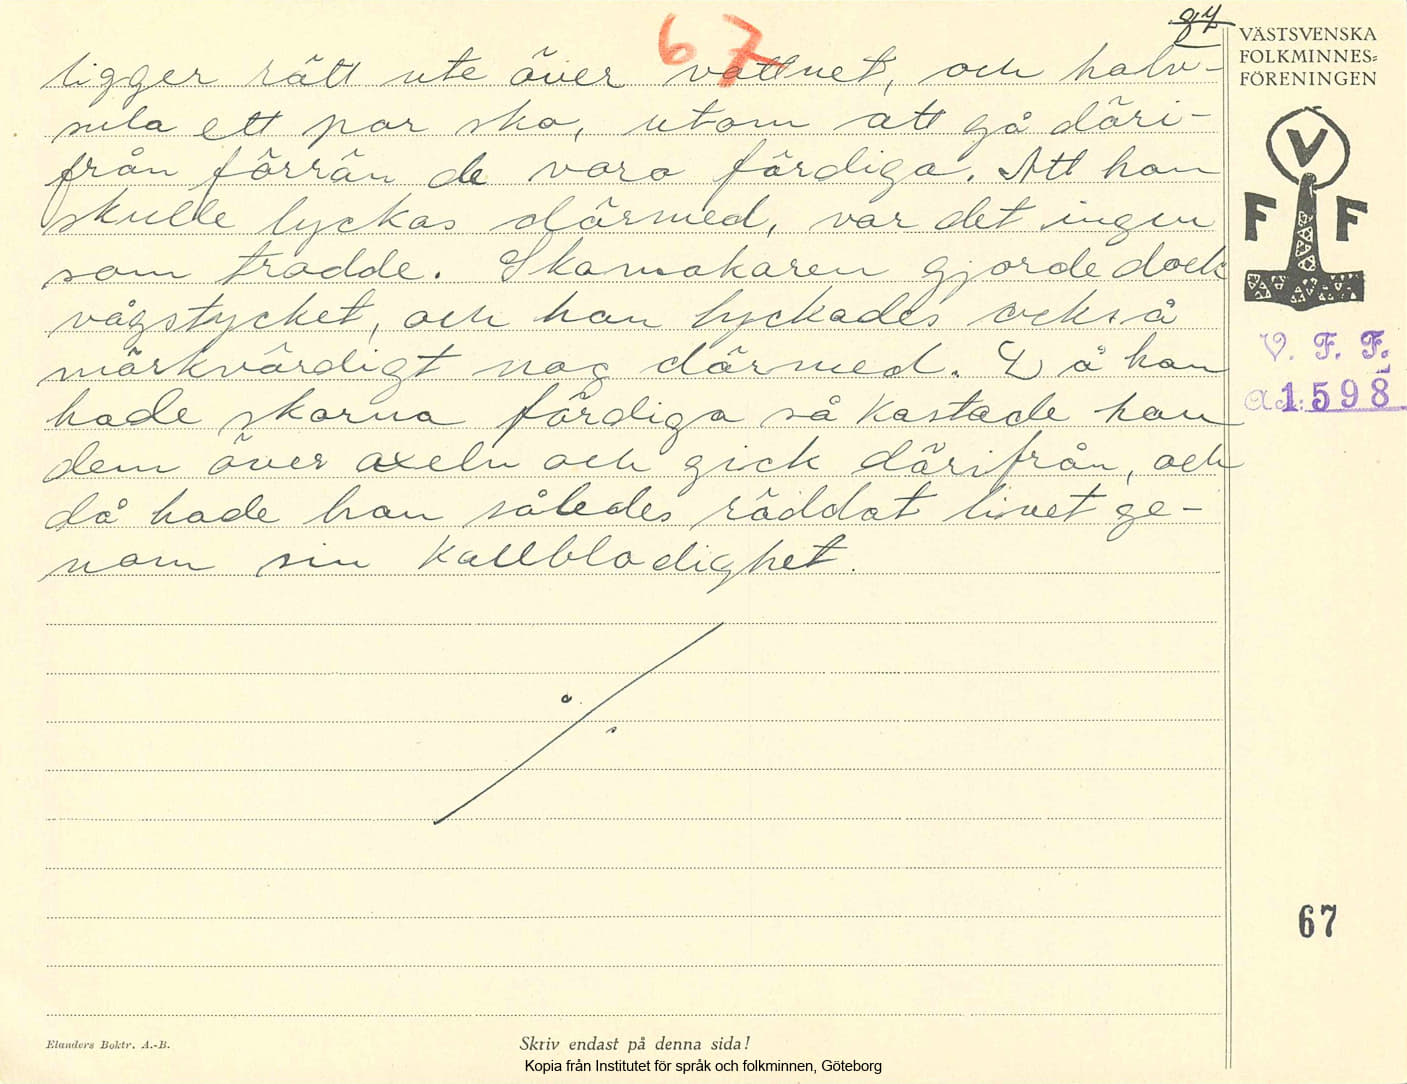 67
VÄSTSVENSKA
FOLKMINNES=
FÖRENINGEN
ligger rätt ute över vattnet, och halv-
sula ett par sko, utom att gå däri-
från förrän de voro färdiga. Att han
skulle lyckas därmed, var det ingen
som trodde. Skomakaren gjorde dock
vågstycket, och han lyckades också
märkvärdigt nog därmed. Då han
hade skorna färdiga så kastade han
dem över axeln och gick därifrån, och
då hade han således räddat livet ge-
nom sin kallblodighet.
V
F F
V. F. F.
1598
67
Elanders Boktr. A.-B.
Skriv endast på denna sida!
Kopia från Institutet för språk och folkminnen, Göteborg